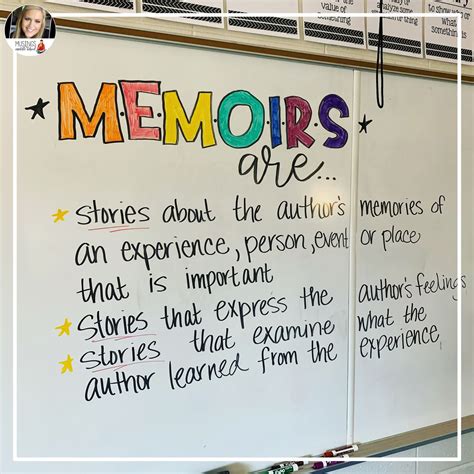 MUSINGS
the value of
something
analyze some
what was
something is
M·E·M·O·I·R·S
are...
stories about the author's memories of
an experience, person, event or place
that is important
Stories that express the author's feelings
Stories that examine what the
author learned from the experience